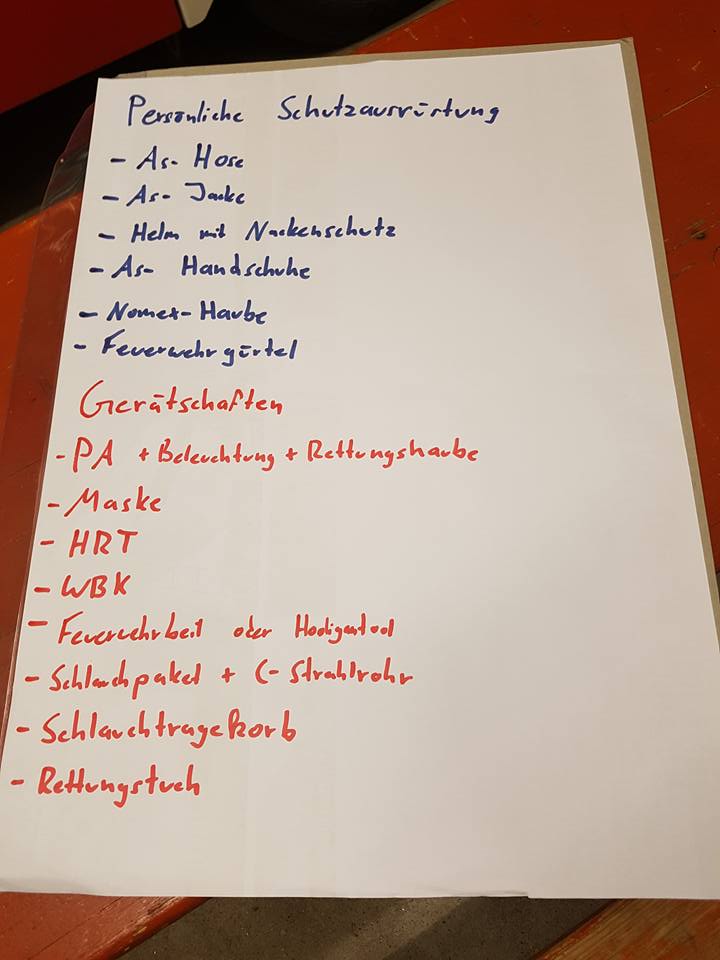 Persönliche Schutzausrüstung
- As- Hose
- As- Jacke
- Helm mit Nackenschutz
- As- Handschuhe
- Nomex-Haube
- Feuerwehrgürtel
Gerätschaften
- PA + Beleuchtung + Rettungshaube
- Maske
- HRT
- WBK
- Feuerwehrbeil oder Hooligantool
- Schlauchpaket + C-Strahlrohr
- Schlauchtragekorb
- Rettungstuch